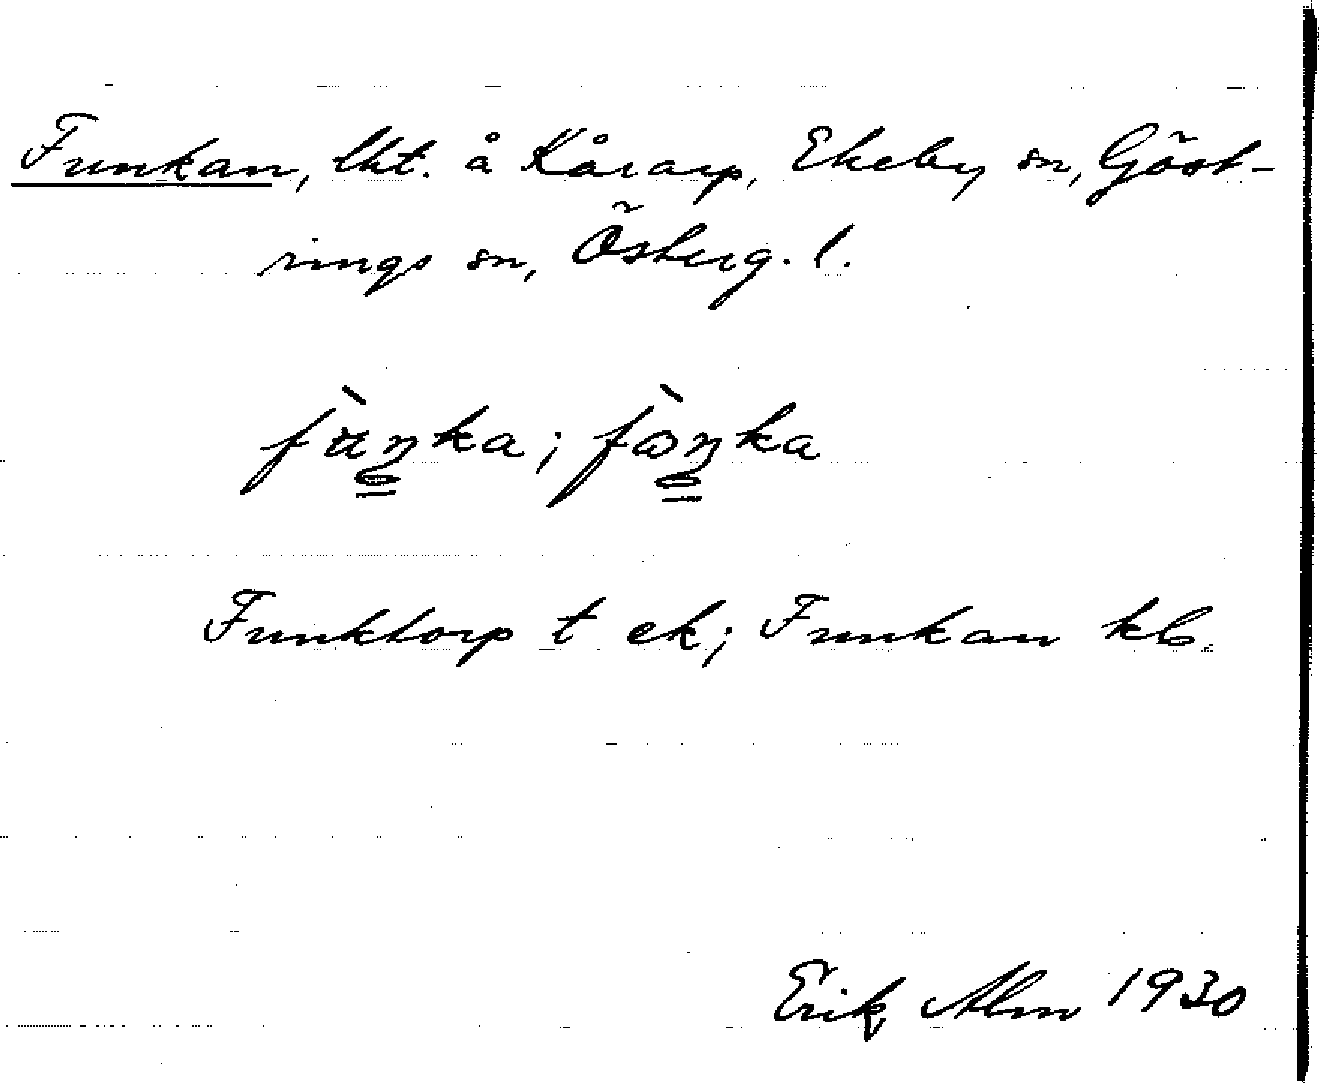 Funkan, lht. å Kårarp, Ekeby sn, Göst-
rings sn, Österg. l.
fùŋka; fòŋka
Funktorp t ek; Funkan kb.
Erik Alm 1930